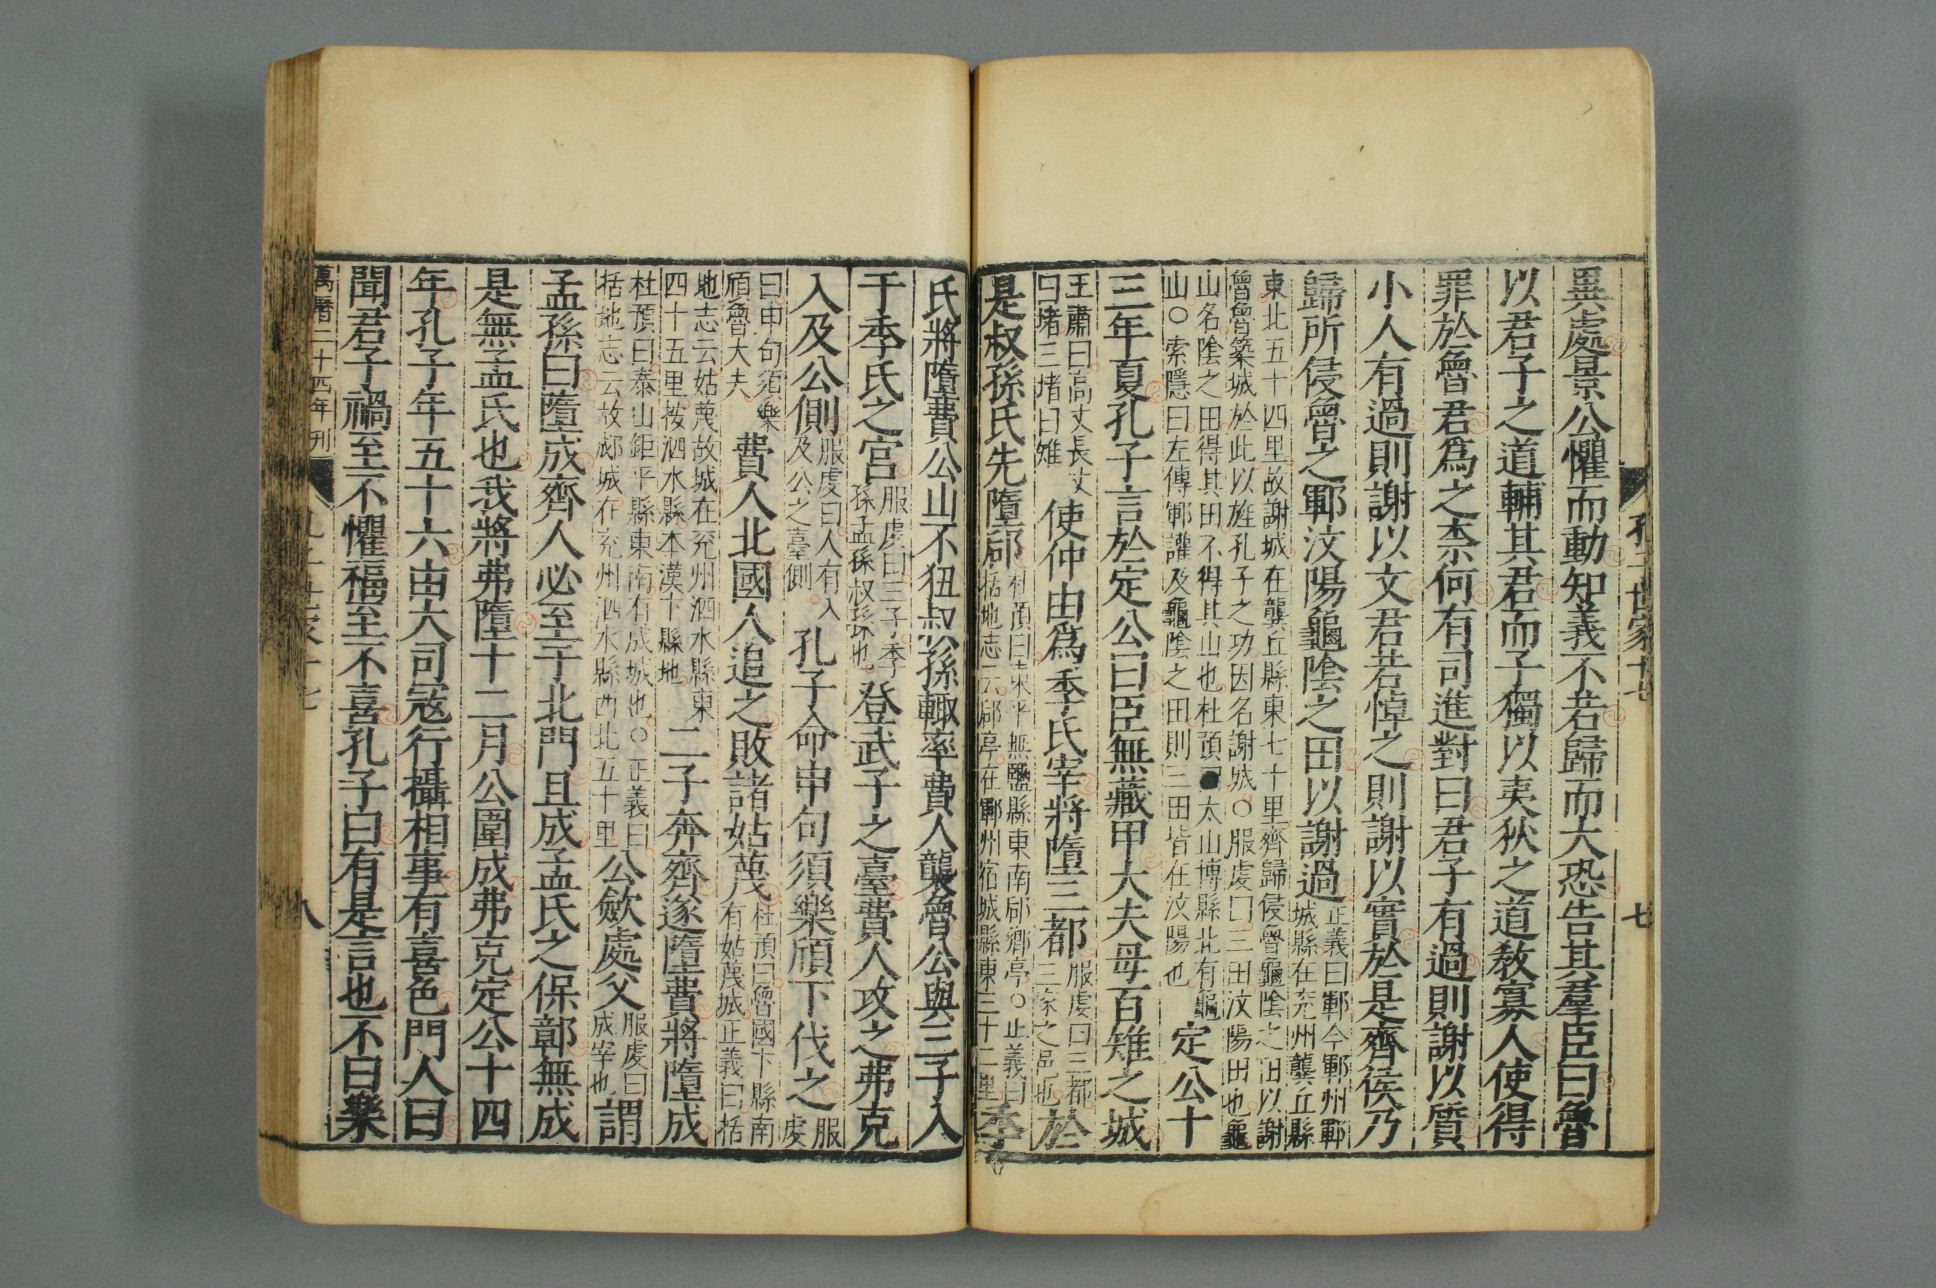 孔子世家十七
七
異處景公懼而動知義不若歸而大恐告其羣臣曰魯
以君子之道輔其君而子獨以夷狄之道教寡人使得
罪於魯君爲之柰何有司進對曰君子有過則謝以質
小人有過則謝以文君若悼之則謝以實於是齊侯乃
歸所侵魯之鄆汶陽龜陰之田以謝過
正義曰鄆今鄆州鄆
城縣在兖州龔丘縣
東北五十四里故謝城在龔丘縣東七十里齊歸侵魯龜陰之田以謝
魯魯築城於此以旌孔子之功因名謝城○服虔曰三田汶陽田也龜
山名陰之田得其田不得其山也杜預曰太山博縣北有龜
山○索隱曰左傳鄆讙及龜陰之田則三田皆在汶陽也
定公十
三年夏孔子言於定公曰臣無藏甲大夫毋百雉之城
王肅曰高丈長丈
曰堵三堵曰雉
使仲由爲季氏宰將墮三都
服虔曰三都
三家之邑也
於
是叔孫氏先墮郈
杜預曰東平無鹽縣東南郈鄉亭○正義曰
括地志云郈亭在鄆州宿城縣東三十二里
季
氏將墮費公山不狃叔孫輒率費人襲魯公與三子入
于季氏之宮
服虔曰三子季
孫孟孫叔孫也
登武子之臺費人攻之弗克
入及公側
服虔曰人有入
及公之臺側
孔子命申句須樂頎下伐之
服虔
曰申句須樂
頎魯大夫
費人北國人追之敗諸姑蔑
杜預曰魯國卞縣南
有姑蔑城正義曰括
地志云姑蔑故城在兖州泗水縣東
四十五里按泗水縣本漢卞縣地
二子奔齊遂墮費將墮成
杜預曰泰山鉅平縣東南有成城也○正義曰
括地志云故郕城在兖州泗水縣西北五十里
公斂處父
服虔曰
成宰也
謂
孟孫曰墮成齊人必至于北門且成孟氏之保鄣無成
是無孟氏也我將弗墮十二月公圍成弗克定公十四
年孔子年五十六由大司寇行攝相事有喜色門人曰
聞君子禍至不懼福至不喜孔子曰有是言也不曰樂
萬曆二十四年刊
八